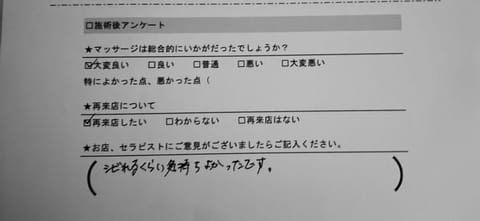 □施術後アンケート
★マッサージは総合的にいかがだったでしょうか？
☑大変良い □良い □普通 □悪い □大変悪い
特によかった点、悪かった点（
★再来店について
☑再来店したい □わからない □再来店はない
★お店、セラピストにご意見がございましたらご記入ください。
(シビれるくらい気持ちよかったです。)